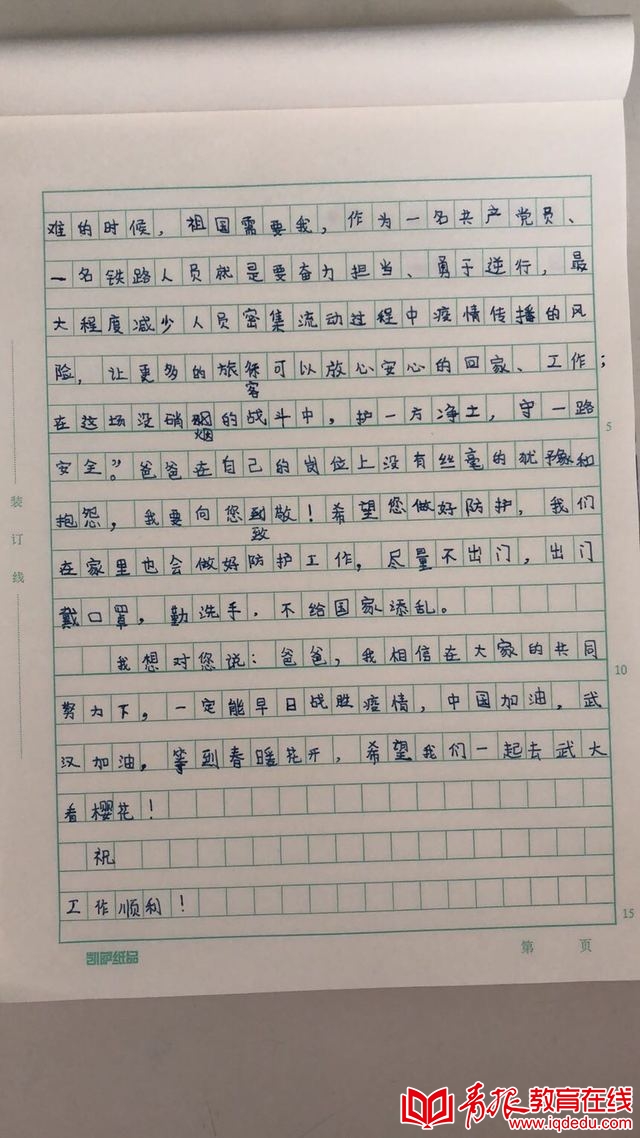 难的时候，祖国需要我，作为一名共产党员、
一名铁路人员就是要奋力担当、勇于逆行，最
大程度减少人员密集流动过程中疫情传播的风
险，让更多的旅客可以放心安心的回家、工作；
在这场没硝烟的战斗中，护一方净土，守一路
5
安全”。爸爸在自己的岗位上没有丝毫的犹豫和
抱怨，我要向您致敬！希望您做好防护，我们
在家里也会做好防护工作，尽量不出门，出门
戴口罩，勤洗手，不给国家添乱。
我想对您说：爸爸，我相信在大家的共同
10
努力下，一定能早日战胜疫情，中国加油，武
汉加油，等到春暖花开，希望我们一起去武大
看樱花！
祝
工作顺利！
15
装订线
凯萨纸品
第 页
青报教育在线
www.iqdedu.com